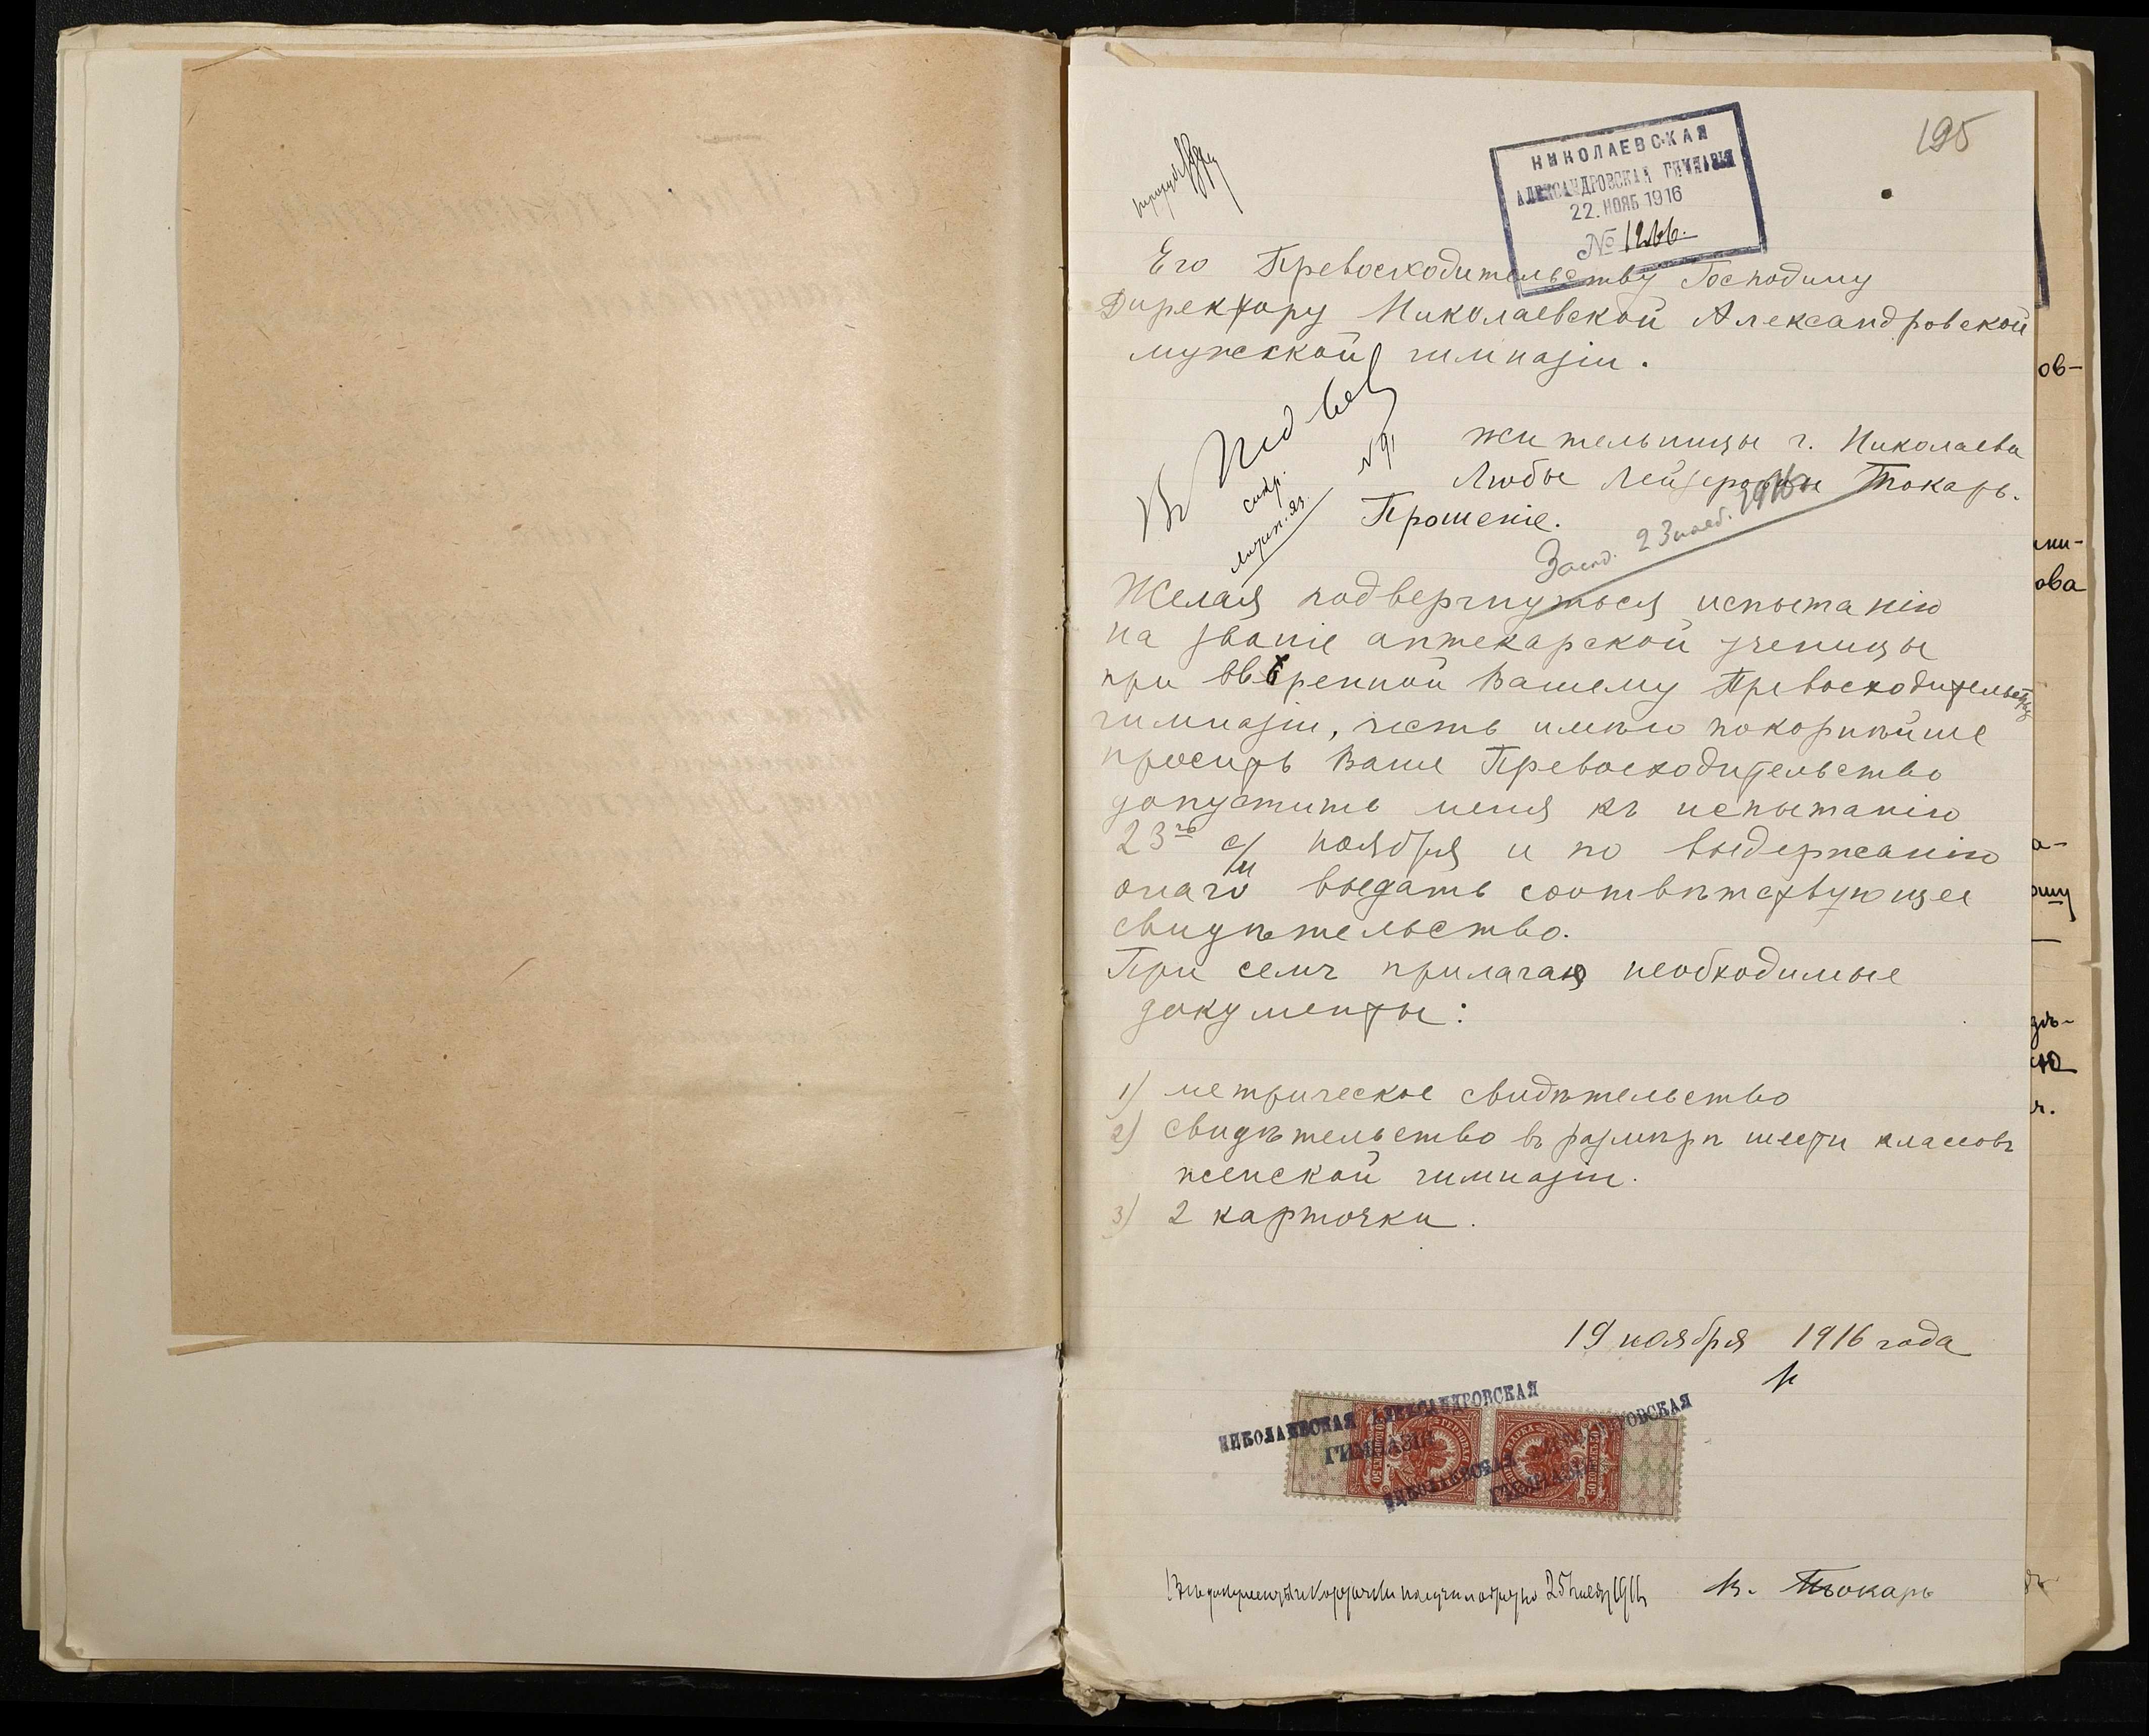 195
НИКОЛАЕВСКАЯ
АЛЕКСАНДРОВСКАЯ ГИМНАЗІЯ
22. НОЯБ 1916
№ 1266.
Его Превосходительству Господину
Директору Николаевской Александровской
мужской гимназіи.
Въ Пед Сов
жительницы г. Николаева
Любы Лейзеровны Токарь.
Прошеніе.
23 нояб. 1916
Желая подвергнуться испытанію
на званіе аптекарской ученицы
при ввѣренной Вашему Превосходительству
гимназіи, честь имѣю покорнѣйше
просить Ваше Превосходительство
допустить меня къ испытанію
23го с/м ноября и по выдержанію
онаго выдать соотвѣтствующее
свидѣтельство.
При семъ прилагаю необходимые
документы:
1) метрическое свидѣтельство
2) свидѣтельство въ размѣрѣ шести классовъ
женской гимназіи.
3) 2 карточки.
19 ноября 1916 года
НИКОЛАЕВСКАЯ АЛЕКСАНДРОВСКАЯ
ГИМНАЗІЯ
НИКОЛАЕВСКАЯ АЛЕКСАНДРОВСКАЯ
ГИМНАЗІЯ
документы и карточки получила обратно 25 нояб 1916
Токарь
ов-
ова
а-
ю